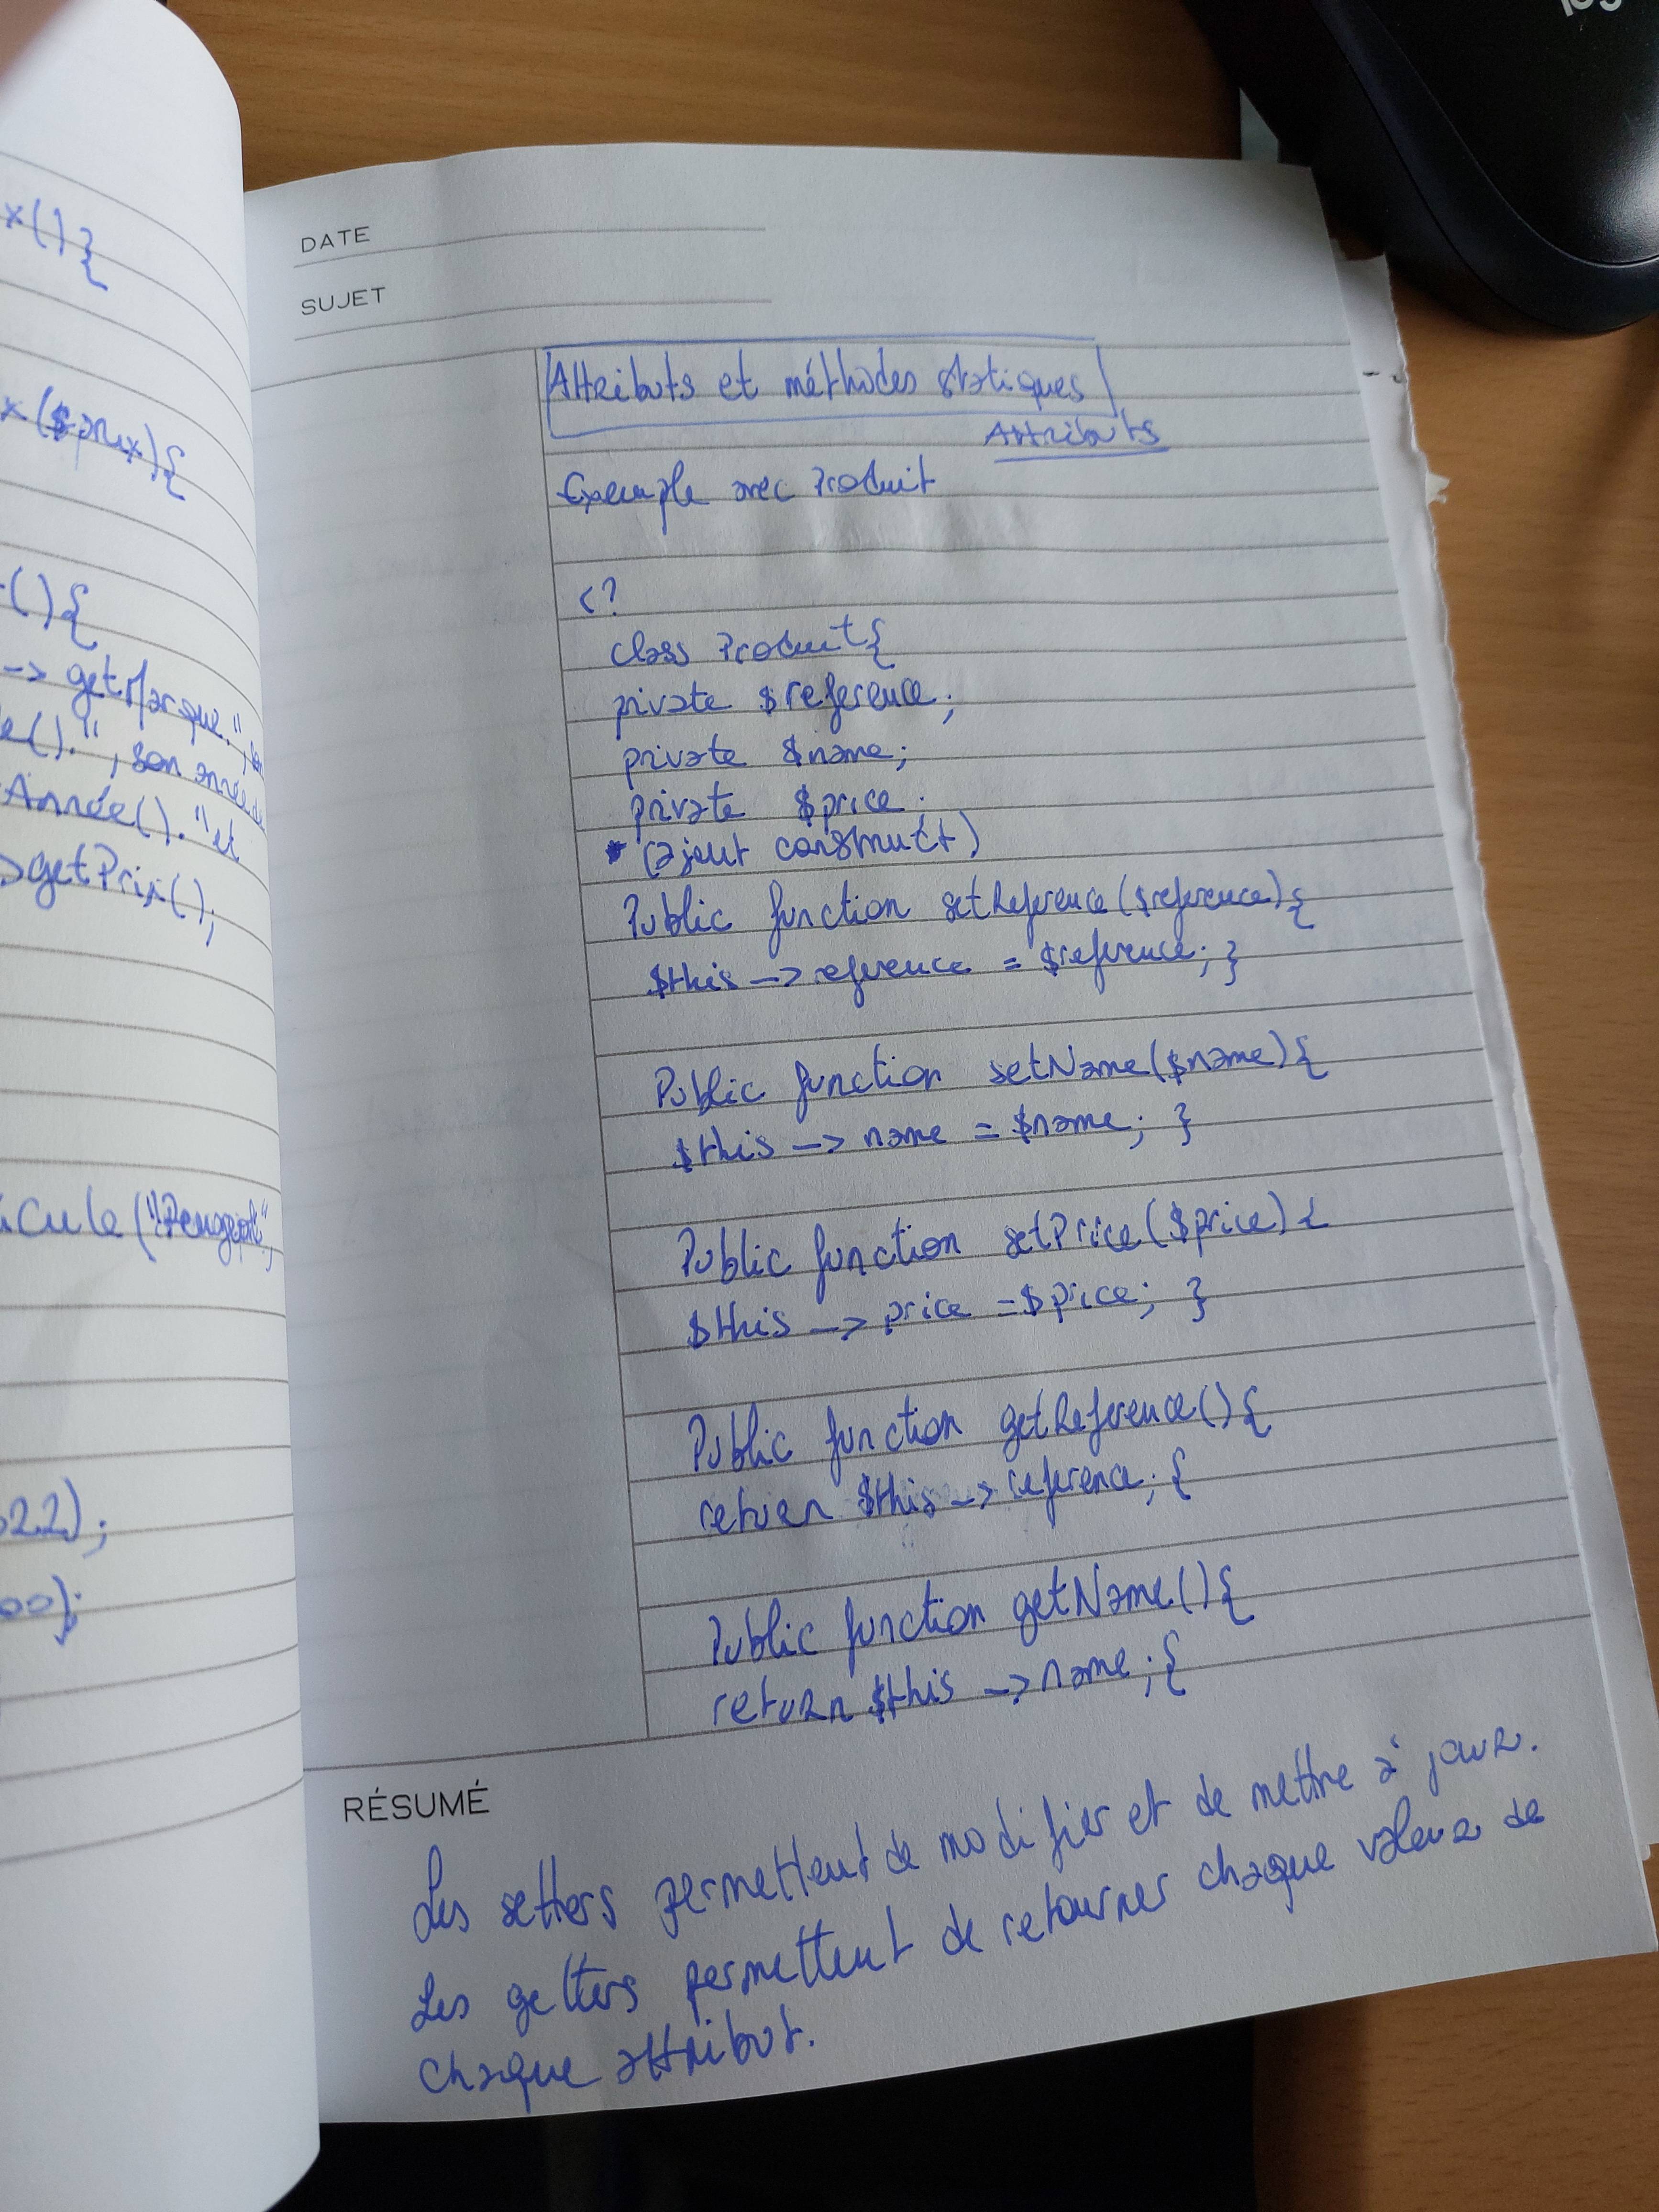 x(){
x($prix){
(){
-> getMarque.", son
e().", son année de
Année()."et
>getPrix();
icule("Peugeot",
022);
00);
DATE
SUJET
Attributs et méthodes statiques
Attributs
Exemple avec Produit
<?
class Produit{
private $reference;
private $name;
private $price;
* (ajout construct)
Public function setReference($reference){
$this -> reference = $reference; }
Public function setName($name){
$this -> name = $name; }
Public function setPrice($price){
$this -> price = $price; }
Public function getReference(){
return $this -> reference; {
Public function getName(){
return $this -> name; {
RÉSUMÉ
Les setters permettent de modifier et de mettre à jour.
Les getters permettent de retourner chaque valeur de
chaque attribut.